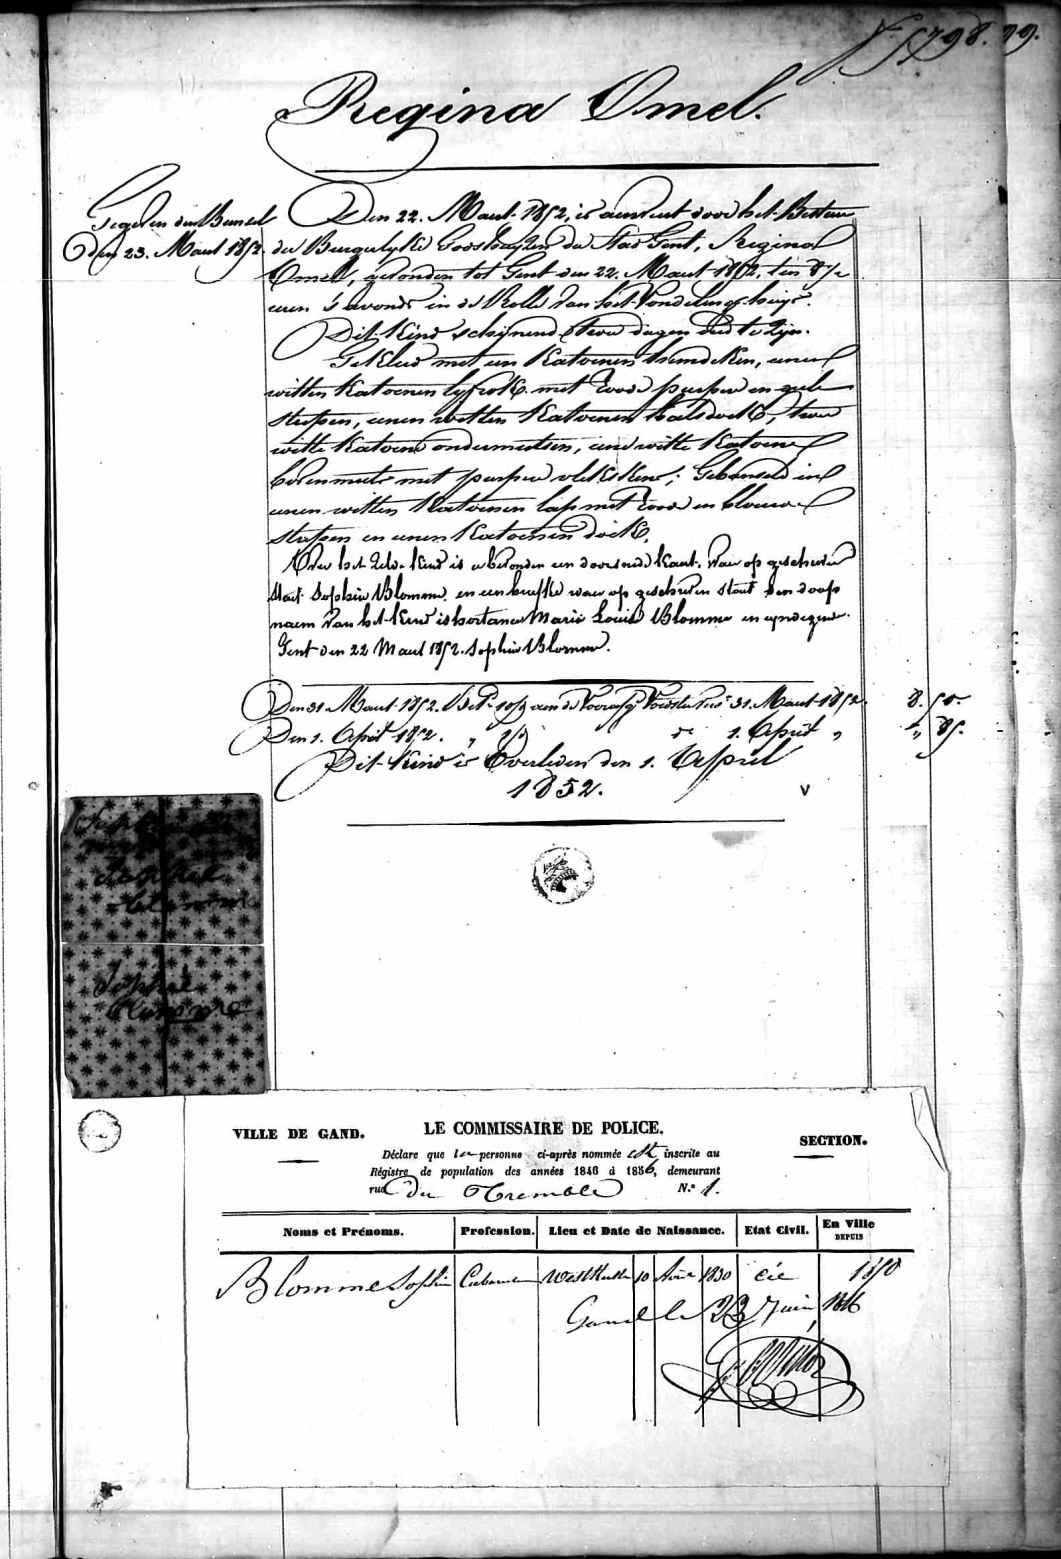 79.
Regina Omel.
Den 22. Maart 1852, is aenveert door het Bestuer
den 23. Maart 1852.
der Burgerlyke Godshuyzen der Stad Gent, Regina
Omel, gevonden tot Gent den 22. Maart 1852, ten 8 1/2
uren 's avonds in de Rolle van het Vondelingshuys.
Dit kind schijnend twee dagen oud te zijn.
Gekleed met een katoenen hemdeken, eenen
witten katoenen lyfrok met roode purper en gele
strepen, eenen witten katoenen halsdoek, twee
witte katoene ondermutsen, eene witte katoene
bovenmuts met purper vlekskens; Gebonden in
eenen witten katoenen lap met rood en blauwe
strepen en eenen katoenen doek.
Over het zelve kind is bevonden een doorsnede kaart. waer op geschreven
staet Sophie Blomme. en een briefke waer op geschreven staet den doop
naem van het kind is hortance Marie Louise Blomme
Gent den 22 Maart 1852. Sophie Blomme.
Den 31 Maart 1852. 31 Maart 1852 8.50.
Den 1. April 1852. " 1. April " " 85.
Dit kind is Overleden den 1. April
1852.
Sophie
Blomme
VILLE DE GAND. LE COMMISSAIRE DE POLICE. SECTION.
Déclare que la personne ci-après nommée est inscrite au
Régistre de population des années 1846 à 1856, demeurant
rue du Tremble N.º 1.
Noms et Prénoms. Profession. Lieu et Date de Naissance. Etat Civil. En Ville DEPUIS
Blomme Sophie 10 Août 1830 1850
Gand le 23 Juin 1856